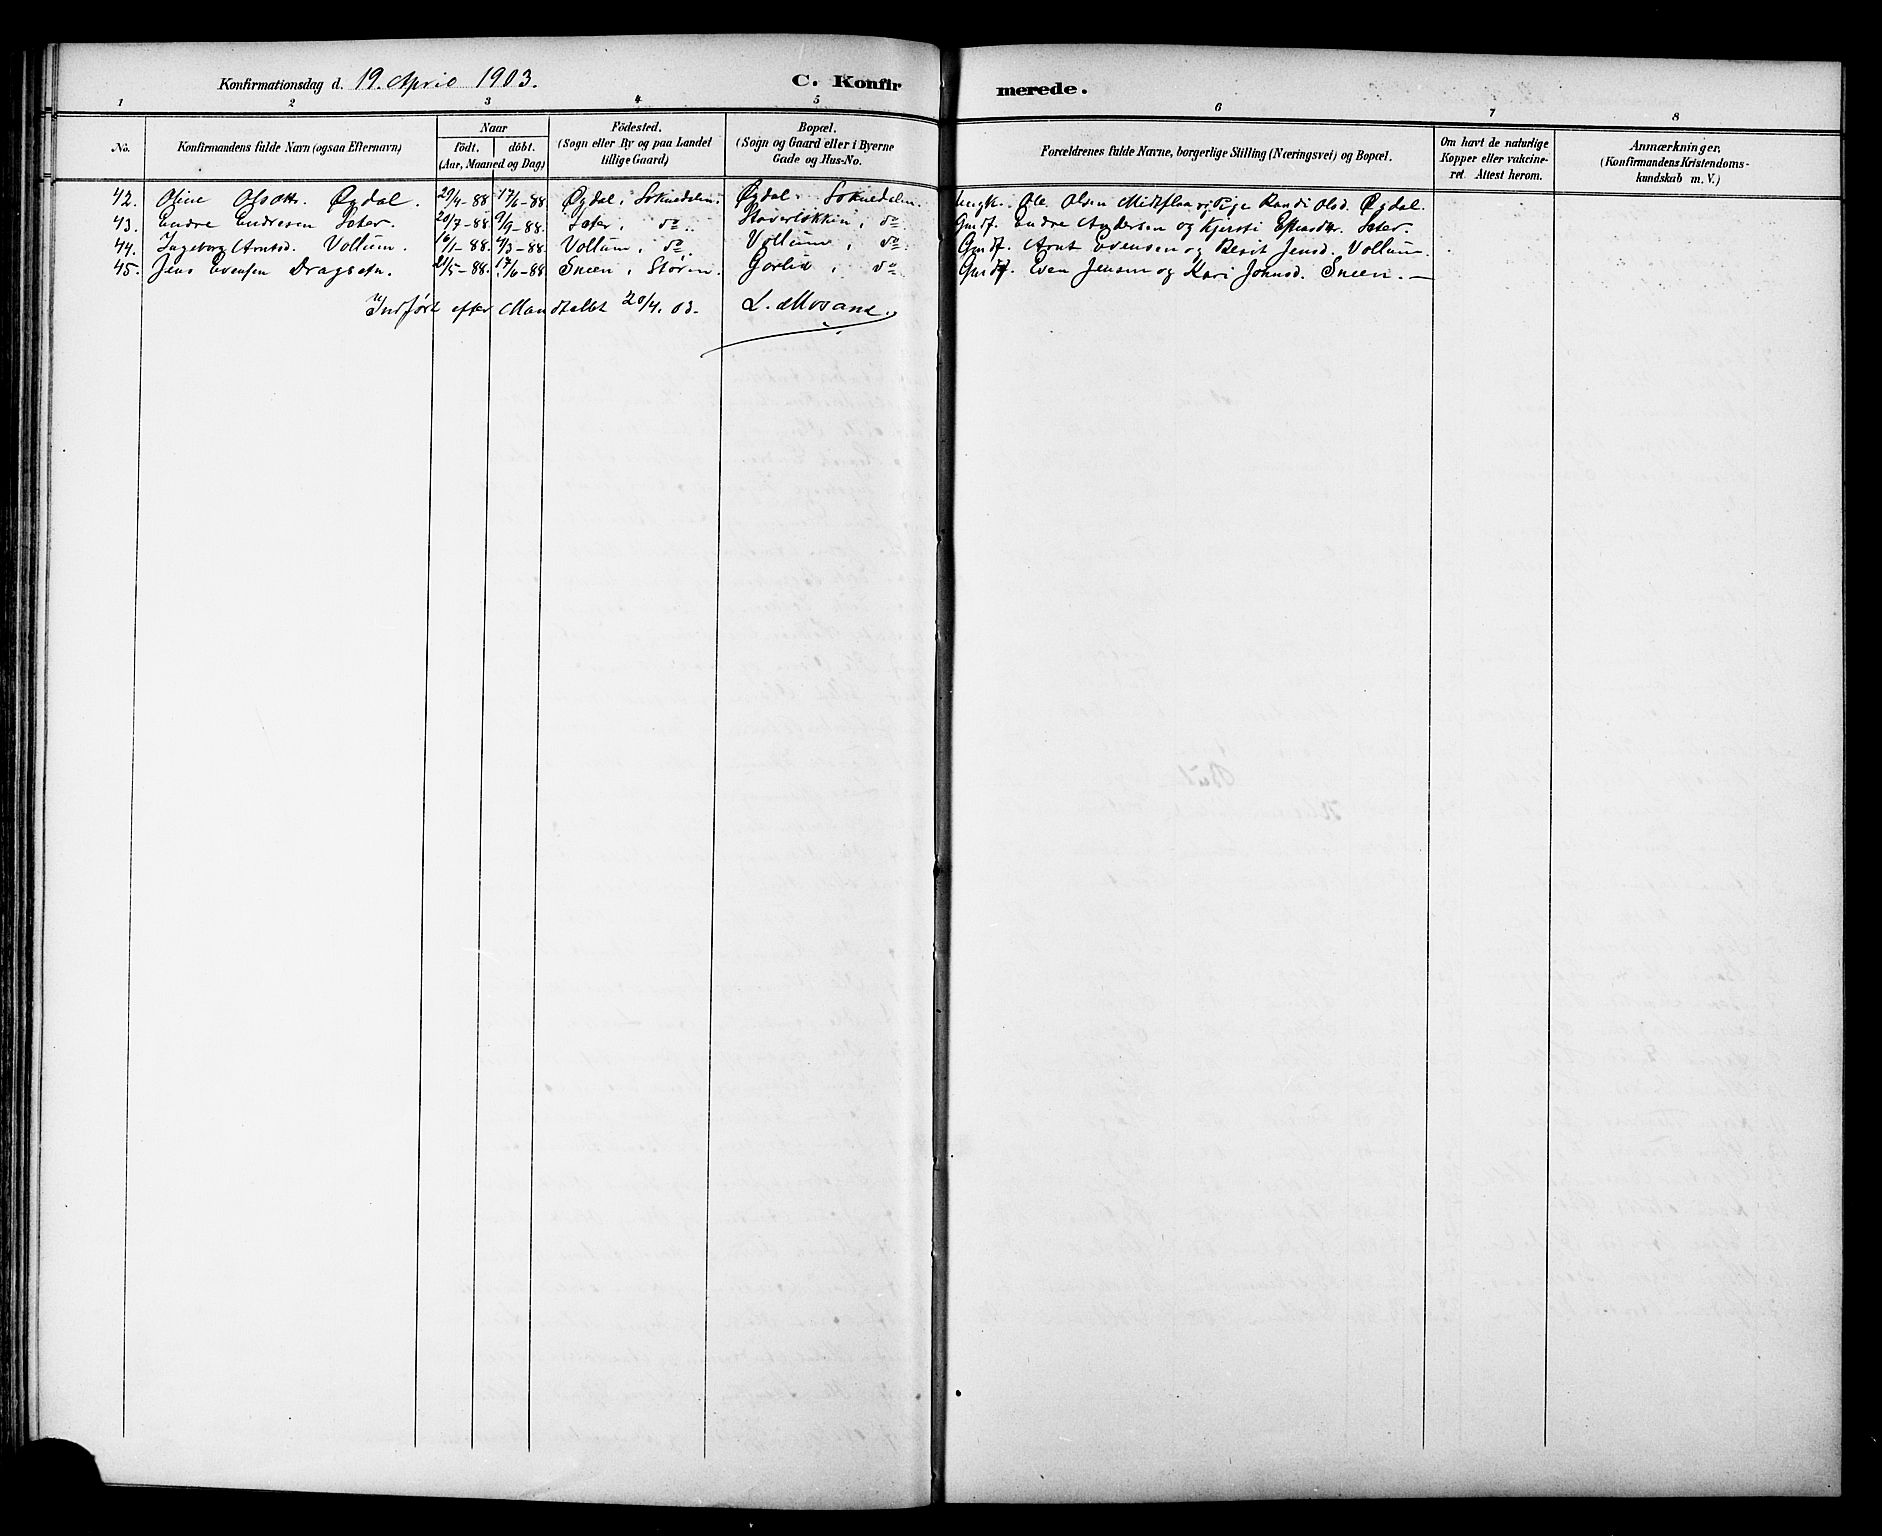 Konfirmationsdag d. 19. April 1903. C. Konfirmerede.
1 2 3 4 5 6 7 8
No.
Konfirmandens fulde Navn (ogsaa Efternavn)
Naar
födt. döbt.
(Aar, Maaned og Dag)
Födested.
(Sogn eller By og paa Landet
tillige Gaard)
Bopæl.
(Sogn og Gaard eller i Byerne
Gade og Hus-No.
Forældrenes fulde Navne, borgerlige Stilling (Næringsvei) og Bopæl.
Om havt de naturlige
Kopper eller vakcine-
ret. Attest herom.
Anmærkninger,
(Konfirmandens Kristendoms-
kundskab m. V.)
42. Oline Olsdtr. Øydal. 29/4-88 17/6-88 Øydal, Soknedalen. Øydal, Soknedalen. Ungk. Ole Olsen Midtflaa og Pige Randi Olsd. Øydal.
43. Endre Endresen Sæter. 20/7-88 9/9-88. Sæter, do Støverløkken, do Gmdf. Endre Andersen og Kjersti Estensdtr. Sæter.
44. Ingeborg Arntsd. Vollum. 16/1-88. 4/3-88 Vollum, do Vollum, do Gmdf. Arnt Evensen og Berit Jensd. Vollum.
45. Jens Evensen Dragsetn. 21/5-88. 17/6-88 Sneen, Støren. Gorlia, do Gmdf. Even Jensen og Kari Johnsd. Sneen. —
Indført efter Mandtallet 20/4. 03. L. Mosand.